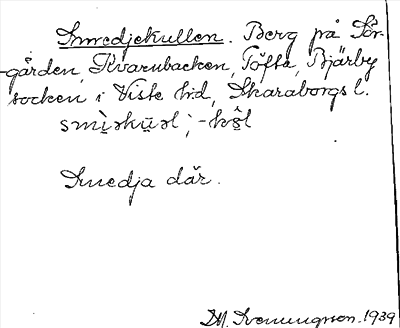 Smedjekullen. Berg på Sör-
gården, Kvarnbacken, Töfta, Bjärby
socken i Viste hd, Skaraborgs l.
Smedja där.
D. M. Svenningsson. 1939